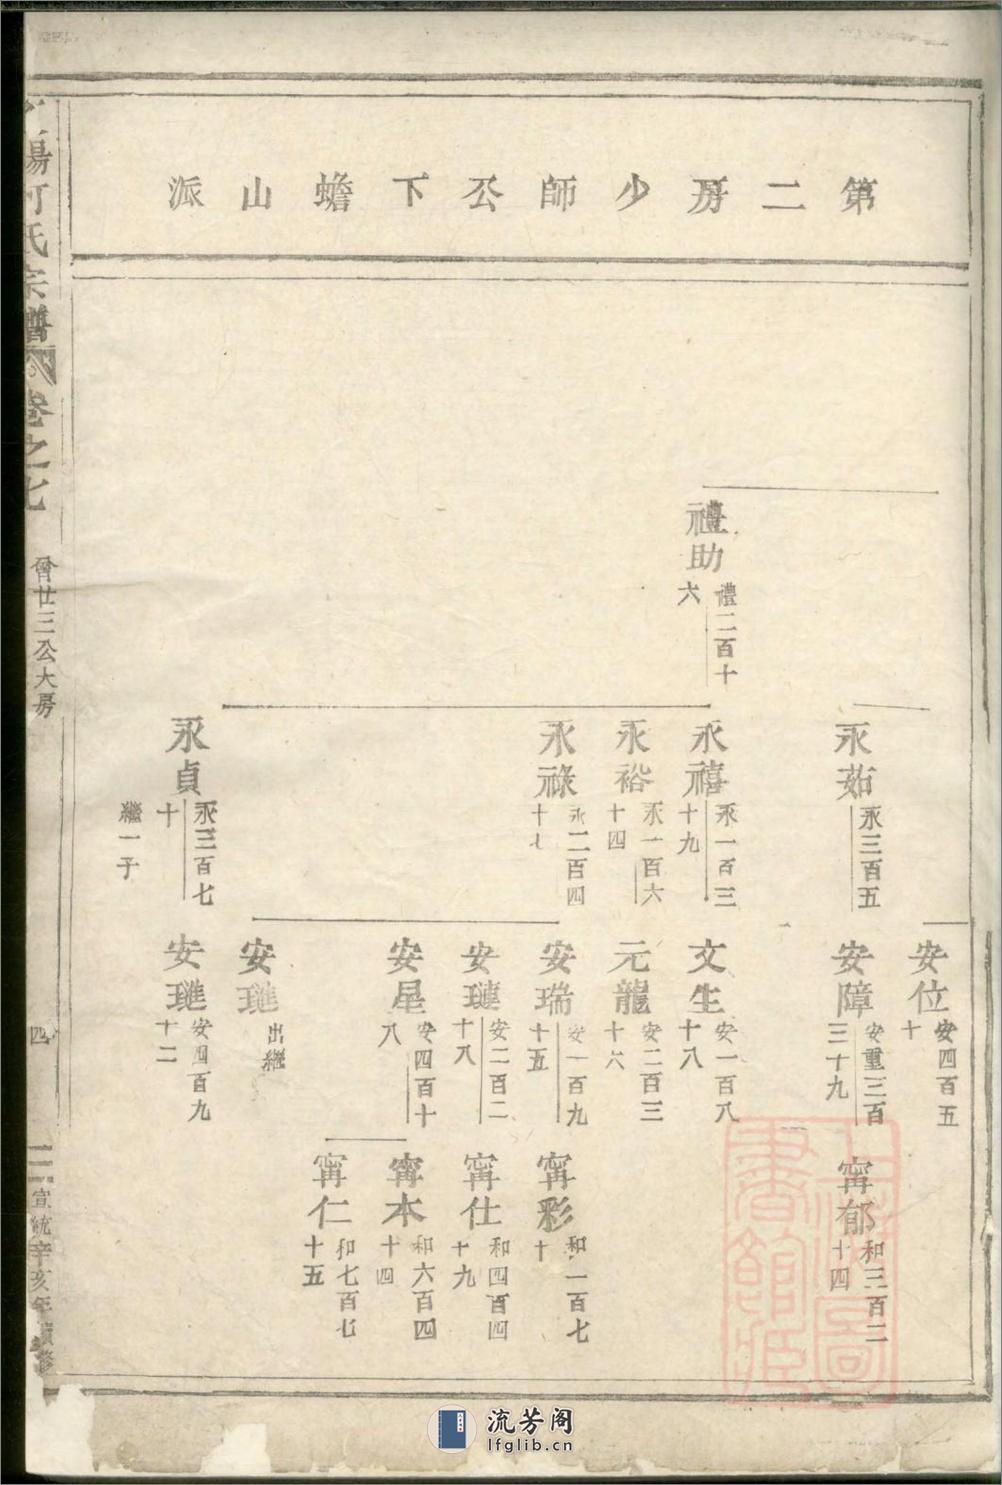 第二房少師公下蟾山派
禮助
禮二百十
六
永茹
永三百五
永禧
永一百三
十九
永裕
永一百六
十四
永祿
永二百四
十七
永貞
永三百七
十
繼一子
安位
安四百五
十
安障
安重三百
三十九
文生
安一百八
十八
元龍
安二百三
十六
安瑞
安一百九
十五
安璉
安二百二
十八
安星
安四百十
八
安璡
出繼
安璡
安四百九
十二
甯郁
和三百二
十四
甯彩
和一百七
十
甯仕
和四百四
十九
甯本
和六百四
十四
甯仁
和七百七
十五
陽何氏宗譜
卷之七
曾廿三公大房
四
宣統辛亥年續修
上海圖
書館藏
流芳阁
lfglib.cn